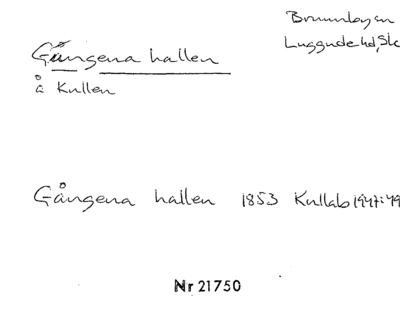 Brunnbyn
Luggude hd, Sk
Gångena hallen
å Kullen
Gångena hallen 1853 Kullab 1947:49
Nr 21750